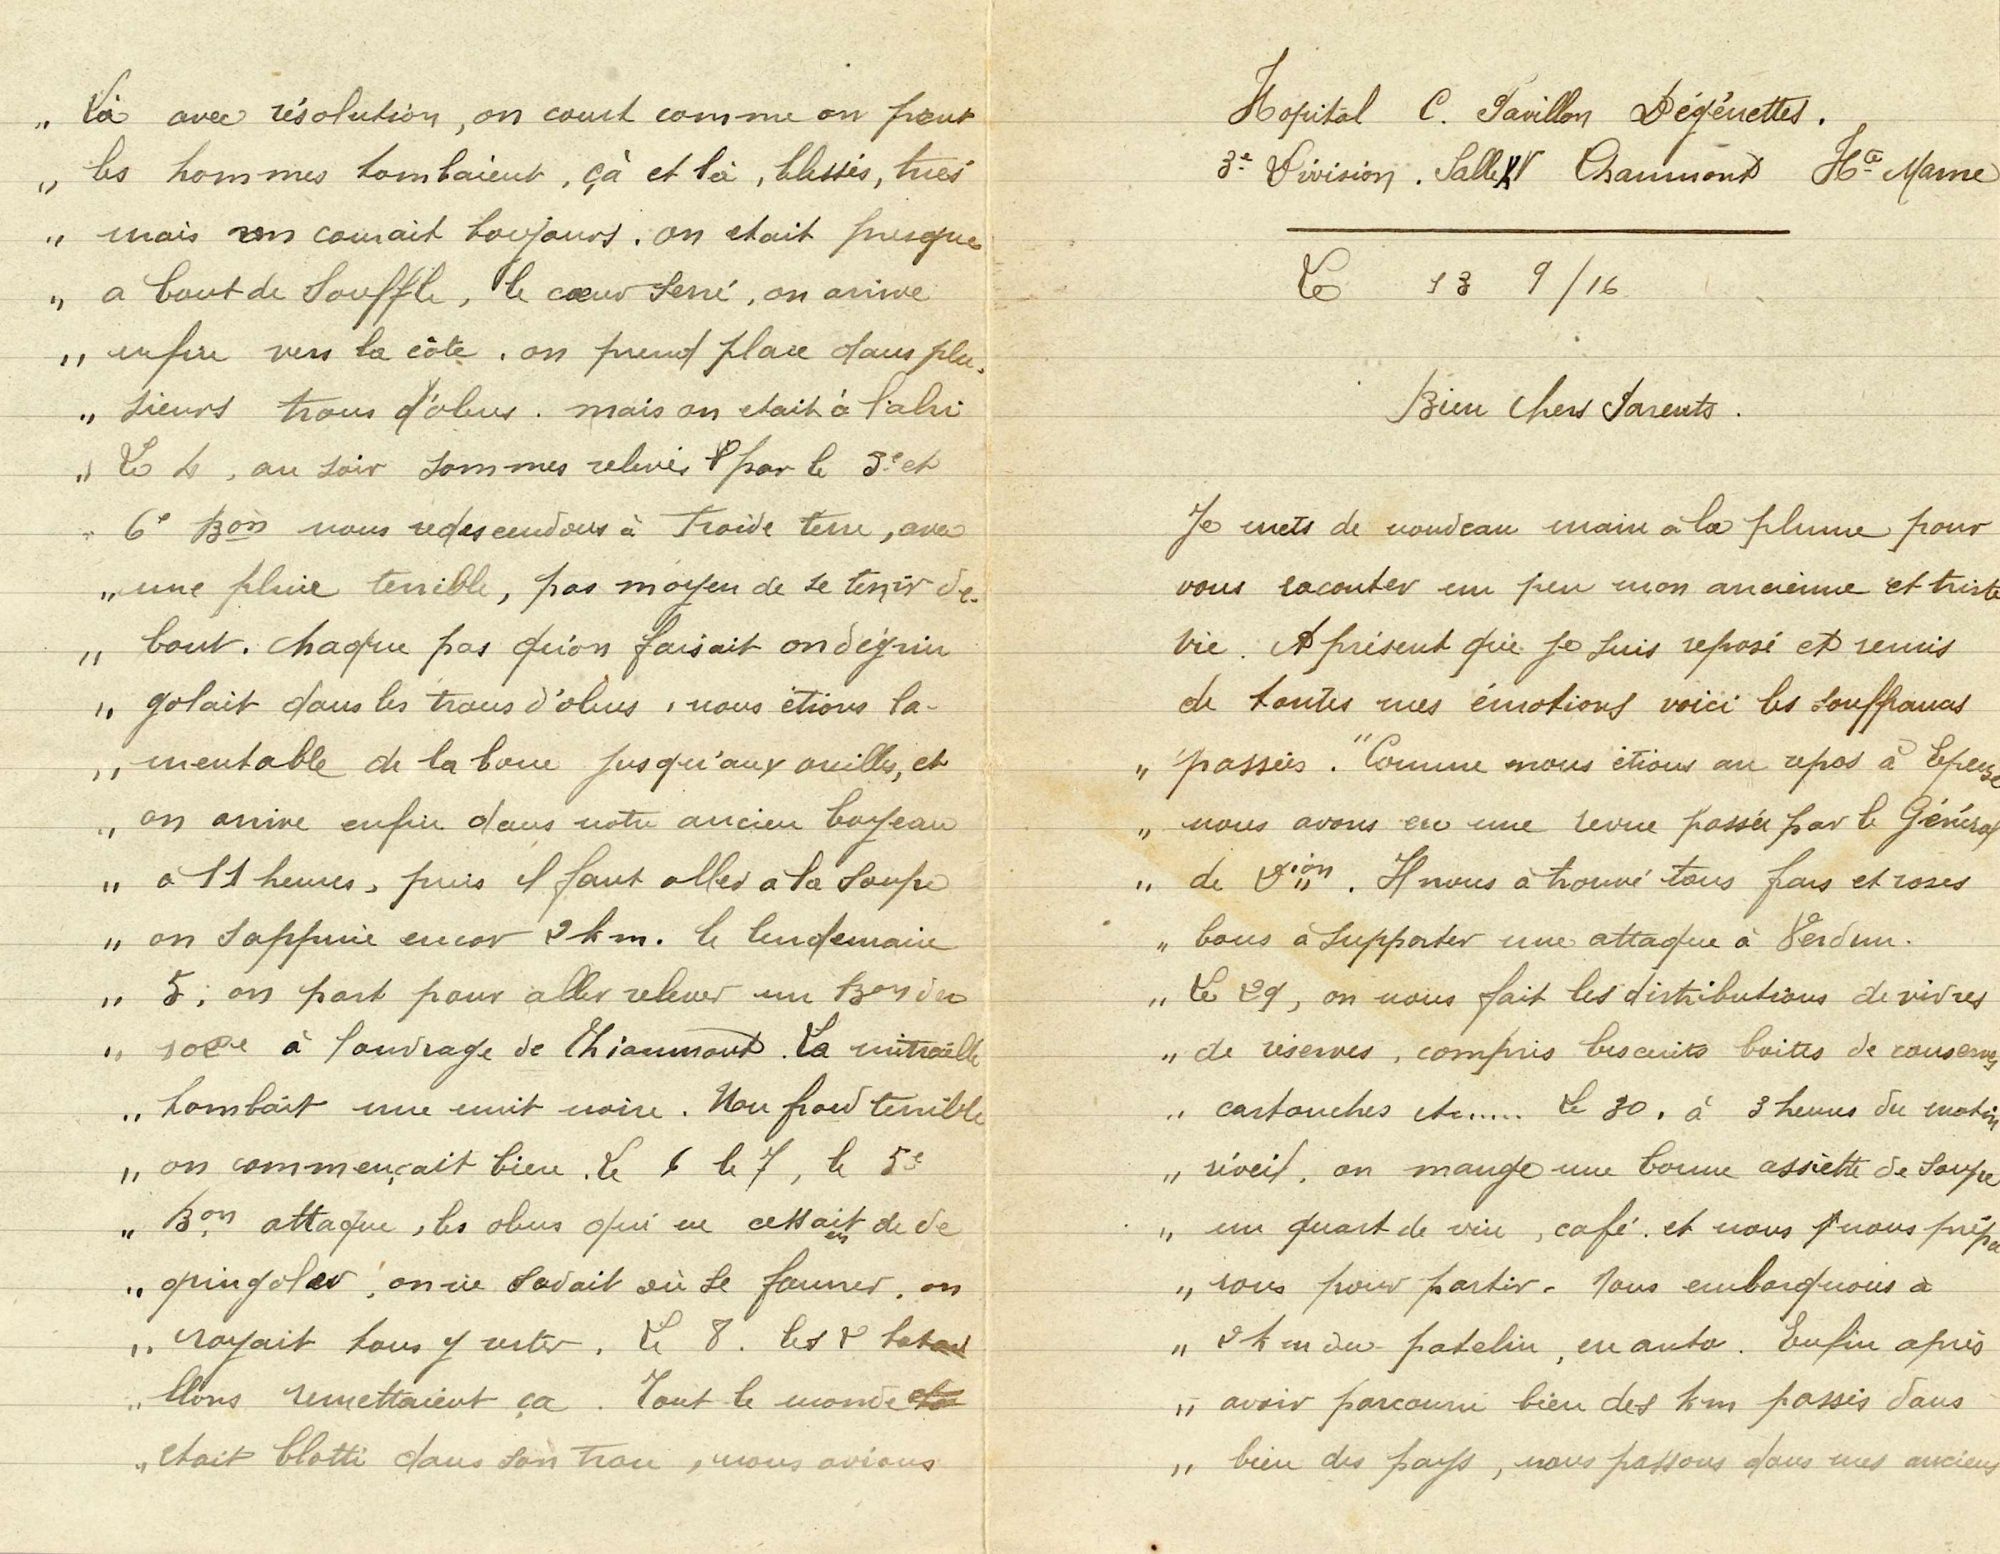 Hopital C. Pavillon Dégénettes.
3e Division. Salle Chaumont Hte Marne
Le 13 9/16
Bien chers Parents.
Je mets de nouveau main à la plume pour
vous raconter un peu mon ancienne et triste
vie. A présent que je suis reposé et remis
de toutes mes émotions voici les souffrances
" passées. "Comme nous étions au repos à Epense
" nous avons eu une revue passée par le Général
" de Dion. Il nous à trouvé tous frais et roses
" bons à supporter une attaque à Verdun.
" Le 29, on nous fait les distributions de vivres
" de réserves, compris biscuits boites de conserves
" cartouches etc..... Le 30, à 3 heures du matin
" réveil, on mange une bonne assiette de soupe
" un quart de vin, café. et nous nous prépa
" rons pour partir. Nous embarquons à
" 2 km du patelin, en auto. Enfin après
" avoir parcouru bien des km passés dans
" bien des pays, nous passons dans mes anciens
" Là avec résolution, on court comme on peut
" les hommes tombaient, çà et là, blessés, tués
" mais on courait toujours. on etait presque
" a bout de souffle, le cœur serré, on arrive
" enfin vers la côte. on prend place dans plu-
" sieurs trous d'obus. mais on etait à l'abri
" Le 4, au soir sommes relevés par le 3e et
" 6e Bon nous redescendons à Froide terre, avec
" une pluie terrible, pas moyen de se tenir de-
" bout. chaque pas qu'on faisait on dégrin
" golait dans les trous d'obus, nous étions la-
" mentable de la boue jusqu'aux oreilles, et
" on arrive enfin dans notre ancien boyeau
" à 11 heures, puis il faut aller a la soupe
" on sappuie encor 2 km. le lendemain
" 5, on part pour aller relever un Bon du
" 102e à l'ouvrage de Thiaumont. La mitraille
" tombait une nuit noire. Un froid terrible
" on commençait bien. Le 6 le 7, le 5e
" Bon attaque, les obus qui ne cessaient de de
" gringoler, on ne savait où se fourrer, on
" croyait tous y rester. Le 8. les 2 batail
" llons remettaient ça. Tout le monde
" etait blotti dans son trou, nous avions